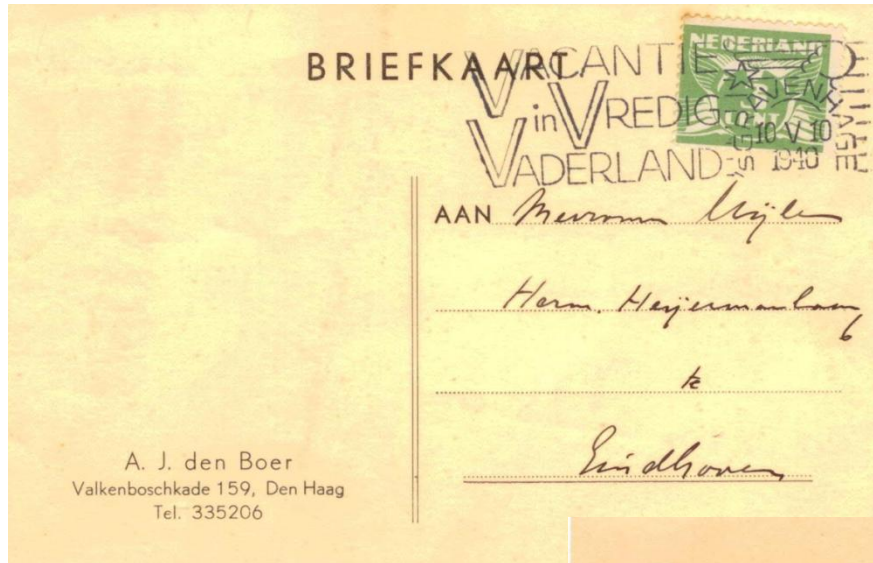 BRIEFKAART
VACANTIE
in VREDIG
VADERLAND
NEDERLAND
CENT
'S GRAVENHAGE
10 V 10
1940
AAN Mevrouw
Herm. Heijermanlaan
6
te
Eindhoven
A. J. den Boer
Valkenboschkade 159, Den Haag
Tel. 335206